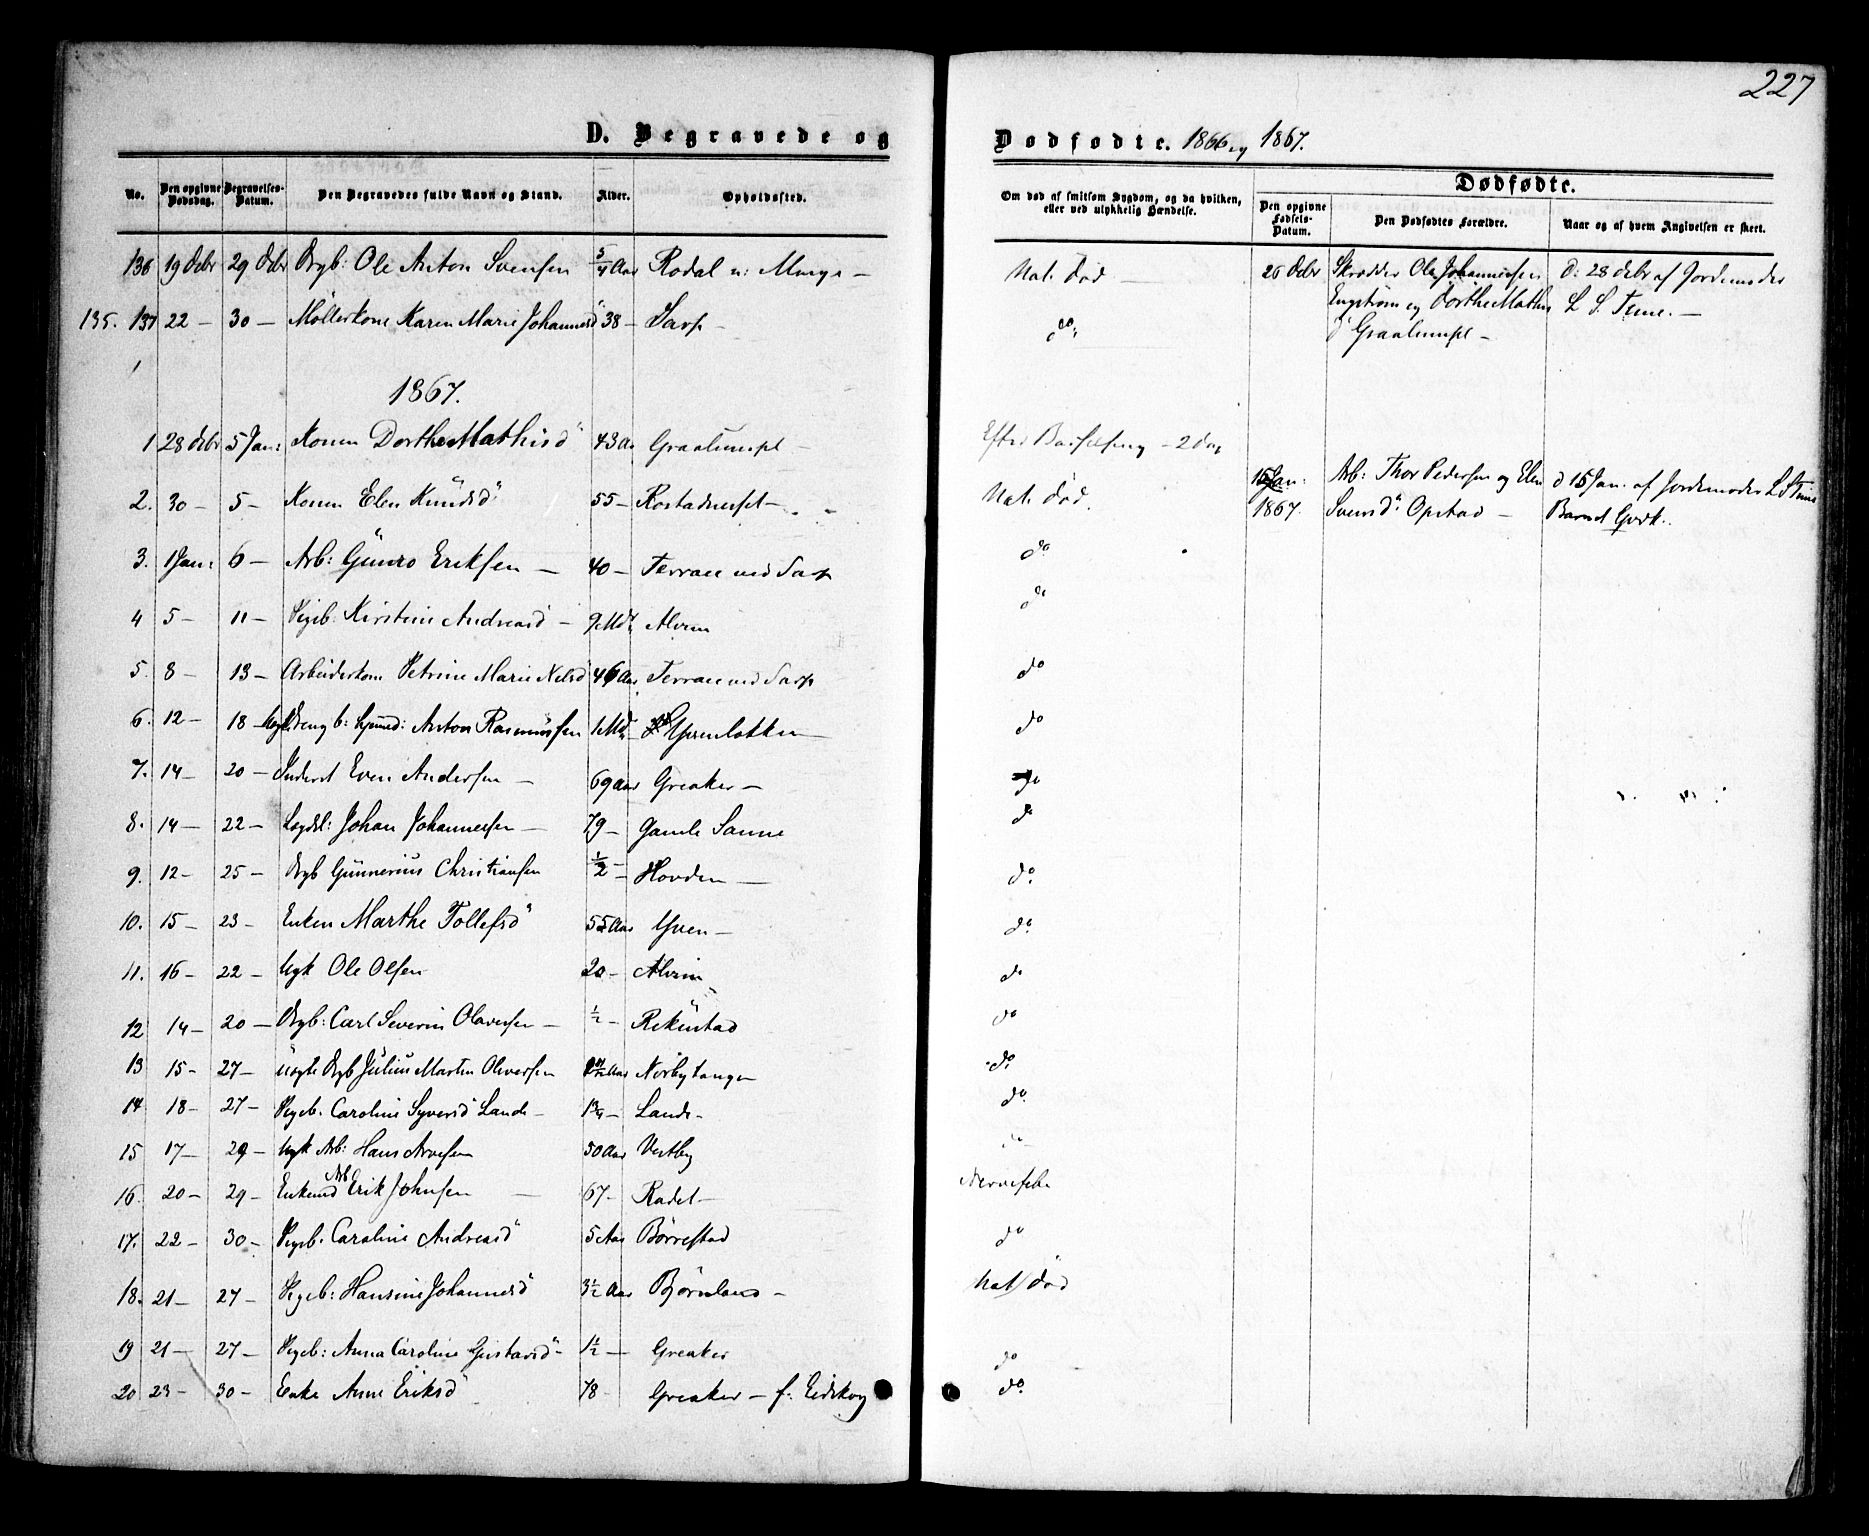 227
D. Begravede og Dødfødte. 1866 og 1867.
No. Den opgivne Dødsdag. Begravelses-Datum. Den Begravedes fulde Navn og Stand. Alder. Opholdssted.
Om død af smitsom Sygdom, og da hvilken, eller ved ulykkelig Hændelse.
Dødfødte.
Den opgivne Fødsels-Datum. Den Dødfødtes Forældre. Naar og af hvem Angivelsen er skeet.
136 19 Debr 29 Debr Drgb: Ole Anton Svensen 5/4 Aar Rodal u: Minge — Nat. Død —
26 Debr Skrædder Ole Johannessen d: 28 debr af Jordemoder
Engstrøm og Dorthe Mathis
d" Graalumspl —
135. 137 22 — 30 — Møllerkone Karen Marie Johannesd" 38 — Sarp — do:
1867.
1 28 debr 5 Jan: Konen Dorthe Mathisd" 43 Aa Graalumspl — Efter Barselseng — 2 dag
2. 30 — 5 — Konen Elen Knudsd" 55 — Nat. Død.
15 Jan: Arb: Thor Pedersen og Elen d 15 Jan. af Jordemoder
1867. Svensd" Opstad — Barnet
3. 1 Jan: 6 — Arb: Gunro Eriksen — 40 — Terrace ved Sarp do
4 5 — 11 — Pigeb. Kirstine Andreasd — 9 Mdr Alvim do
5. 8 — 13 — Arbeiderkone Petrine Marie Nilsd" 46 Aar Terrace ved Sarp do
6. 12 — 18 — Drengb: Anton Rasmussen 1 Md Yvenløkken — do
7. 14 — 20 — Inderst Even Andersen — 69 Aar Greaker — do
8. 14 — 22 — Lægdsl: Johan Johannessen — 79 — Gamle Sanne do
9. 12 — 25 — Drgb Gunnerius Christiansen 1/2 — Hovden — do.
10. 15 — 23 — Enken Marthe Tollefsd" 55 Aar Yven — do
11. 16 — 22 — Ugk Ole Olsen 20 — Alvim do
12 14 — 20 — Drgb: Carl Severin Olavesen — 1/2 — Rekustad do
13 15 — 27 — uægte Drgb Julius Martin Oliversen Aar Norbytangen do.
14 18 — 27 — Pigeb. Caroline Syversd" Lande — 1 3/4 — Lande — do.
15 17 — 29 — Ugk Arb: Hans Arvesen 50 Aar Vestby do —
16. 20 — 29 — Enkemd Arb Erik Johnsen — 67 — Radet — Nervefeber
17. 22 — 30 — Pigeb. Caroline Andreasd" 5 Aar Børrestad do
18. 21 — 27 — Pigeb: Hansine Johannesd" 3 1/2 Aar Bjørnland — Nat. Død
19 21 — 27 — Pigeb: Anna Caroline Gustavsd" 1 1/2 — Greaker do
20 23 — 30 — Enke Anne Eriksd" 78 — Greaker — f: Eidskog do.